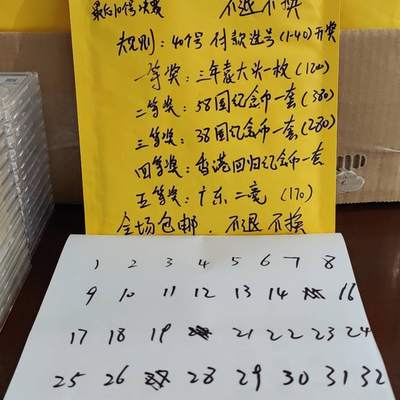 最后10个号决赛 不退不换
规则：40个号 付款选号(1-40)开奖
一等奖：三年袁大头一枚(1200)
二等奖：58国纪念币一套(380)
三等奖：38国纪念币一套(280)
四等奖：香港回归纪念币一套
五等奖：广东二毫(170)
全场包邮，不退不换
1 2 3 4 5 6 7 8
9 10 11 12 13 14 16
17 18 19 21 22 23 24
25 26 28 29 30 31 32